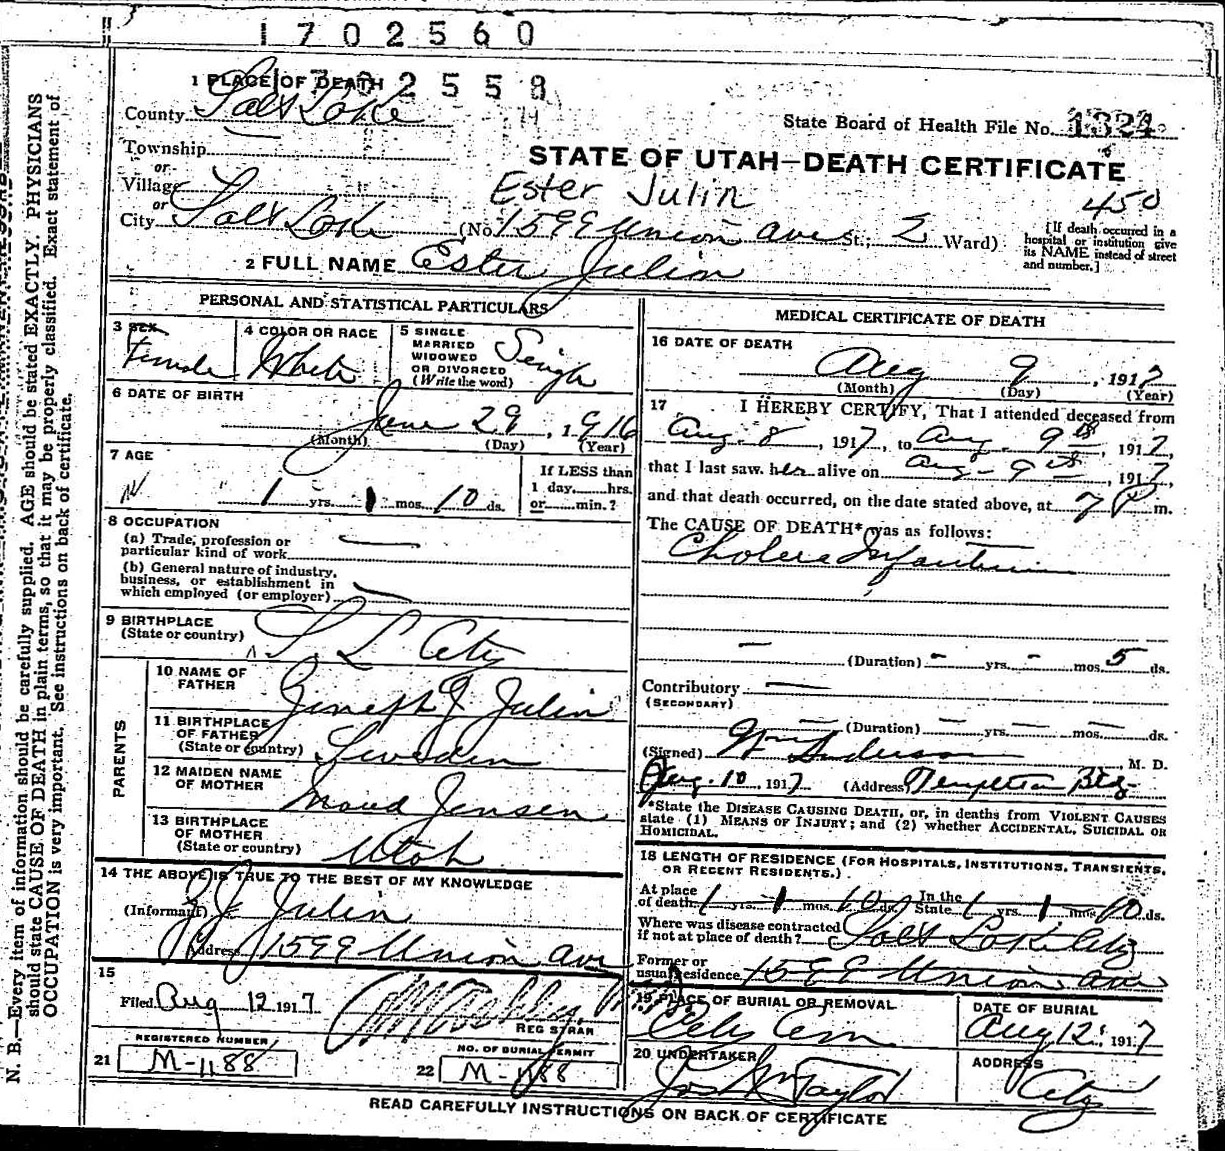 1702560
1 PLACE OF DEATH 1702558
County Salt Lake
State Board of Health File No. 1324
Township
STATE OF UTAH—DEATH CERTIFICATE
or
Village
Ester Julin
450
or
City Salt Lake (No 1599 Union ave St.; 2 Ward)
[If death occurred in a
hospital or institution give
its NAME instead of street
and number.]
2 FULL NAME Ester Julin
PERSONAL AND STATISTICAL PARTICULARS
3 SEX
Female
4 COLOR OR RACE
White
5 SINGLE
MARRIED
WIDOWED
OR DIVORCED
(Write the word)
Single
6 DATE OF BIRTH
June 29, 1916
(Month) (Day) (Year)
7 AGE
1 yrs. 1 mos. 10 ds.
If LESS than
1 day, hrs.
or min.?
8 OCCUPATION
(a) Trade, profession or
particular kind of work
(b) General nature of industry,
business, or establishment in
which employed (or employer)
9 BIRTHPLACE
(State or country)
S L City
PARENTS
10 NAME OF
FATHER
J Julin
11 BIRTHPLACE
OF FATHER
(State or country)
Sweden
12 MAIDEN NAME
OF MOTHER
Maud Jensen
13 BIRTHPLACE
OF MOTHER
(State or country)
Utah
14 THE ABOVE IS TRUE TO THE BEST OF MY KNOWLEDGE
(Informant) J Julin
Address 1599 Union ave
15
Filed Aug 12 1917
REGISTRAR
REGISTERED NUMBER
21 M-1188
NO. OF BURIAL PERMIT
22 M-1188
MEDICAL CERTIFICATE OF DEATH
16 DATE OF DEATH
Aug 9, 1917
(Month) (Day) (Year)
17 I HEREBY CERTIFY, That I attended deceased from
Aug. 8, 1917, to Aug. 9th, 1917,
that I last saw her alive on Aug- 9th, 1917,
and that death occurred, on the date stated above, at 7 P m.
The CAUSE OF DEATH* was as follows:
Cholera Infantum
(Duration) - yrs. - mos. 5 ds.
Contributory
(SECONDARY)
(Duration) — yrs. — mos. — ds.
(Signed) Wm Anderson, M. D.
Aug. 10, 1917 (Address) Templeton Bldg
*State the DISEASE CAUSING DEATH, or, in deaths from VIOLENT CAUSES
state (1) MEANS OF INJURY; and (2) whether ACCIDENTAL, SUICIDAL OR
HOMICIDAL.
18 LENGTH OF RESIDENCE (FOR HOSPITALS, INSTITUTIONS, TRANSIENTS,
OR RECENT RESIDENTS.)
At place of death 1 yrs. 1 mos. 10 ds. In the State 1 yrs. 1 mos. 10 ds.
Where was disease contracted
if not at place of death? Salt Lake City
Former or
usual residence 1599 Union ave
19 PLACE OF BURIAL OR REMOVAL
City Cem
DATE OF BURIAL
Aug 12, 1917
20 UNDERTAKER
Jos Wm Taylor
ADDRESS
City
READ CAREFULLY INSTRUCTIONS ON BACK OF CERTIFICATE
N. B.—Every item of information should be carefully supplied. AGE should be stated EXACTLY. PHYSICIANS
should state CAUSE OF DEATH in plain terms, so that it may be properly classified. Exact statement of
OCCUPATION is very important. See instructions on back of certificate.